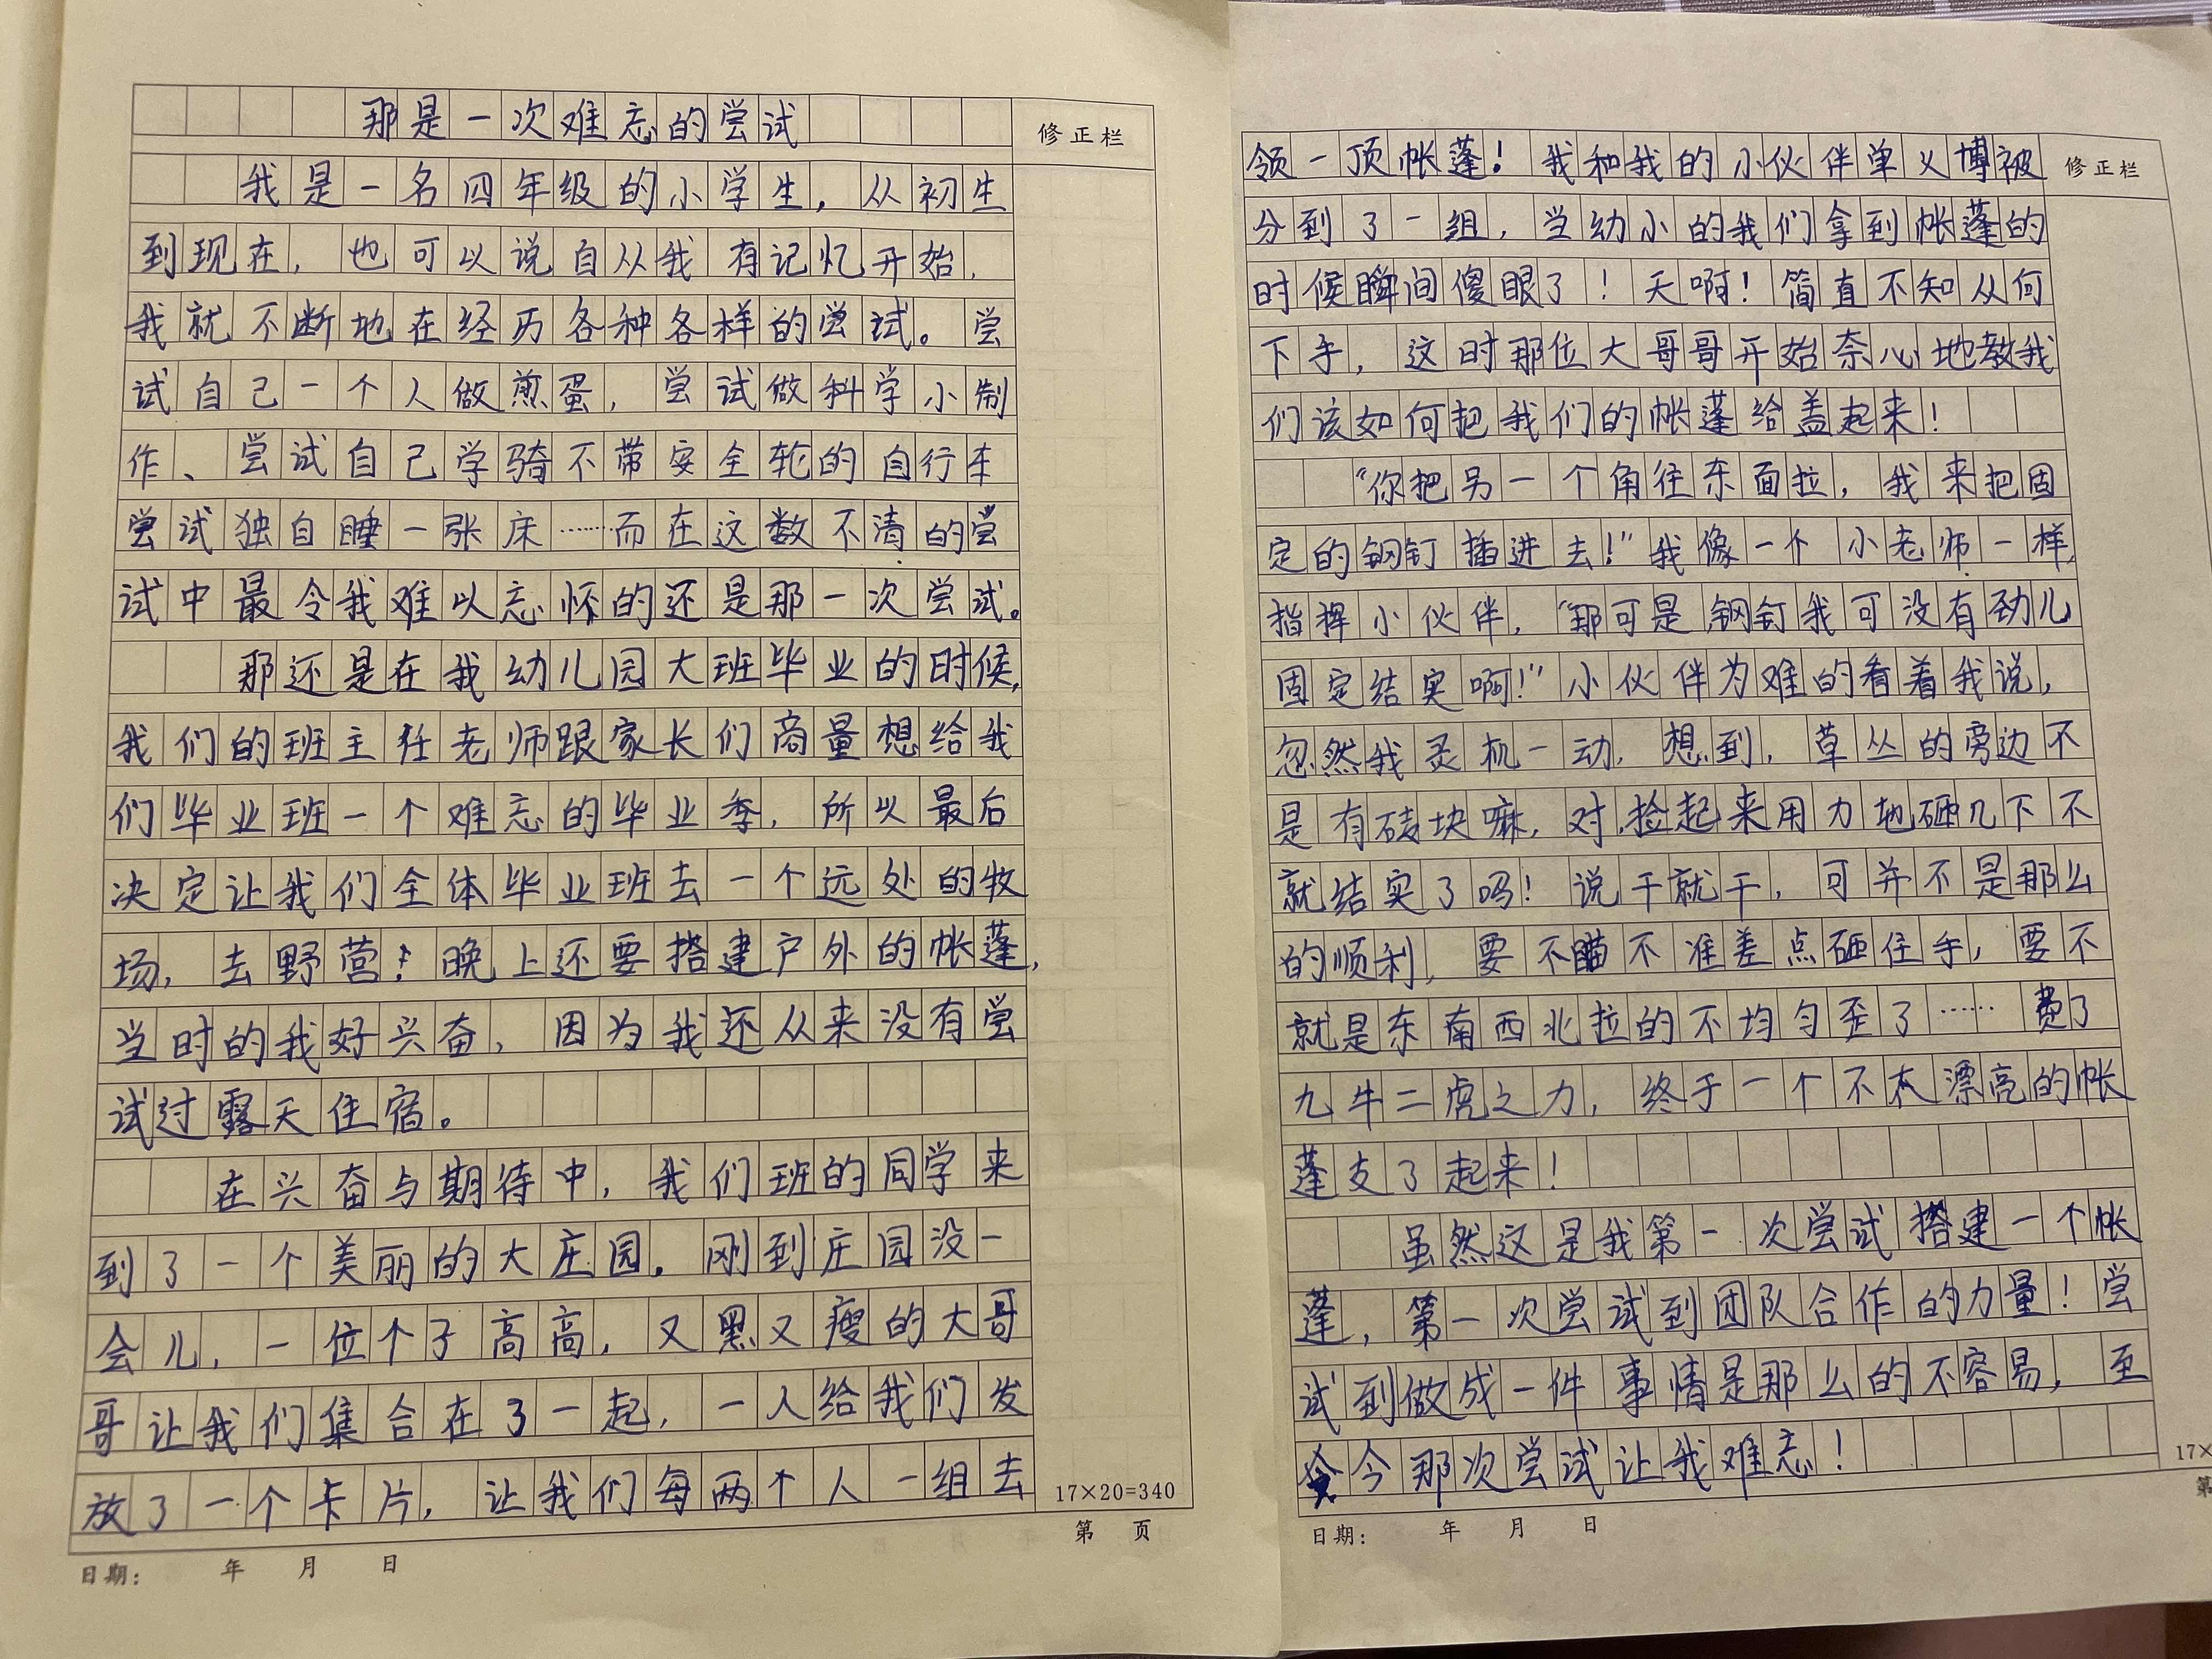 那是一次难忘的尝试
修正栏
我是一名四年级的小学生,从初生
到现在,也可以说自从我有记忆开始,
我就不断地在经历各种各样的尝试。尝
试自己一个人做煎蛋,尝试做科学小制
作、尝试自己学骑不带安全轮的自行车
尝试独自睡一张床……而在这数不清的尝
试中最令我难以忘怀的还是那一次尝试。
那还是在我幼儿园大班毕业的时候,
我们的班主任老师跟家长们商量想给我
们毕业班一个难忘的毕业季,所以最后
决定让我们全体毕业班去一个远处的牧
场,去野营!晚上还要搭建户外的帐蓬,
当时的我好兴奋,因为我还从来没有尝
试过露天住宿。
在兴奋与期待中,我们班的同学来
到了一个美丽的大庄园。刚到庄园没一
会儿,一位个子高高,又黑又瘦的大哥
哥让我们集合在了一起,一人给我们发
放了一个卡片,让我们每两个人一组去
17×20=340
第 页
日期: 年 月 日
领一顶帐蓬!我和我的小伙伴单义博被
修正栏
分到了一组,当幼小的我们拿到帐蓬的
时候瞬间傻眼了!天啊!简直不知从何
下手,这时那位大哥哥开始奈心地教我
们该如何把我们的帐蓬给盖起来!
“你把另一个角往东面拉,我来把固
定的钢钉插进去!”我像一个小老师一样,
指挥小伙伴,“那可是钢钉我可没有劲儿
固定结实啊!”小伙伴为难的看着我说,
忽然我灵机一动,想到,草丛的旁边不
是有砖块嘛,对,捡起来用力地砸几下不
就结实了吗!说干就干,可并不是那么
的顺利,要不瞄不准差点砸住手,要不
就是东南西北拉的不均匀歪了……费了
九牛二虎之力,终于一个不太漂亮的帐
蓬支了起来!
虽然这是我第一次尝试搭建一个帐
蓬,第一次尝试到团队合作的力量!尝
试到做成一件事情是那么的不容易,至
今那次尝试让我难忘!
17×
第
日期: 年 月 日